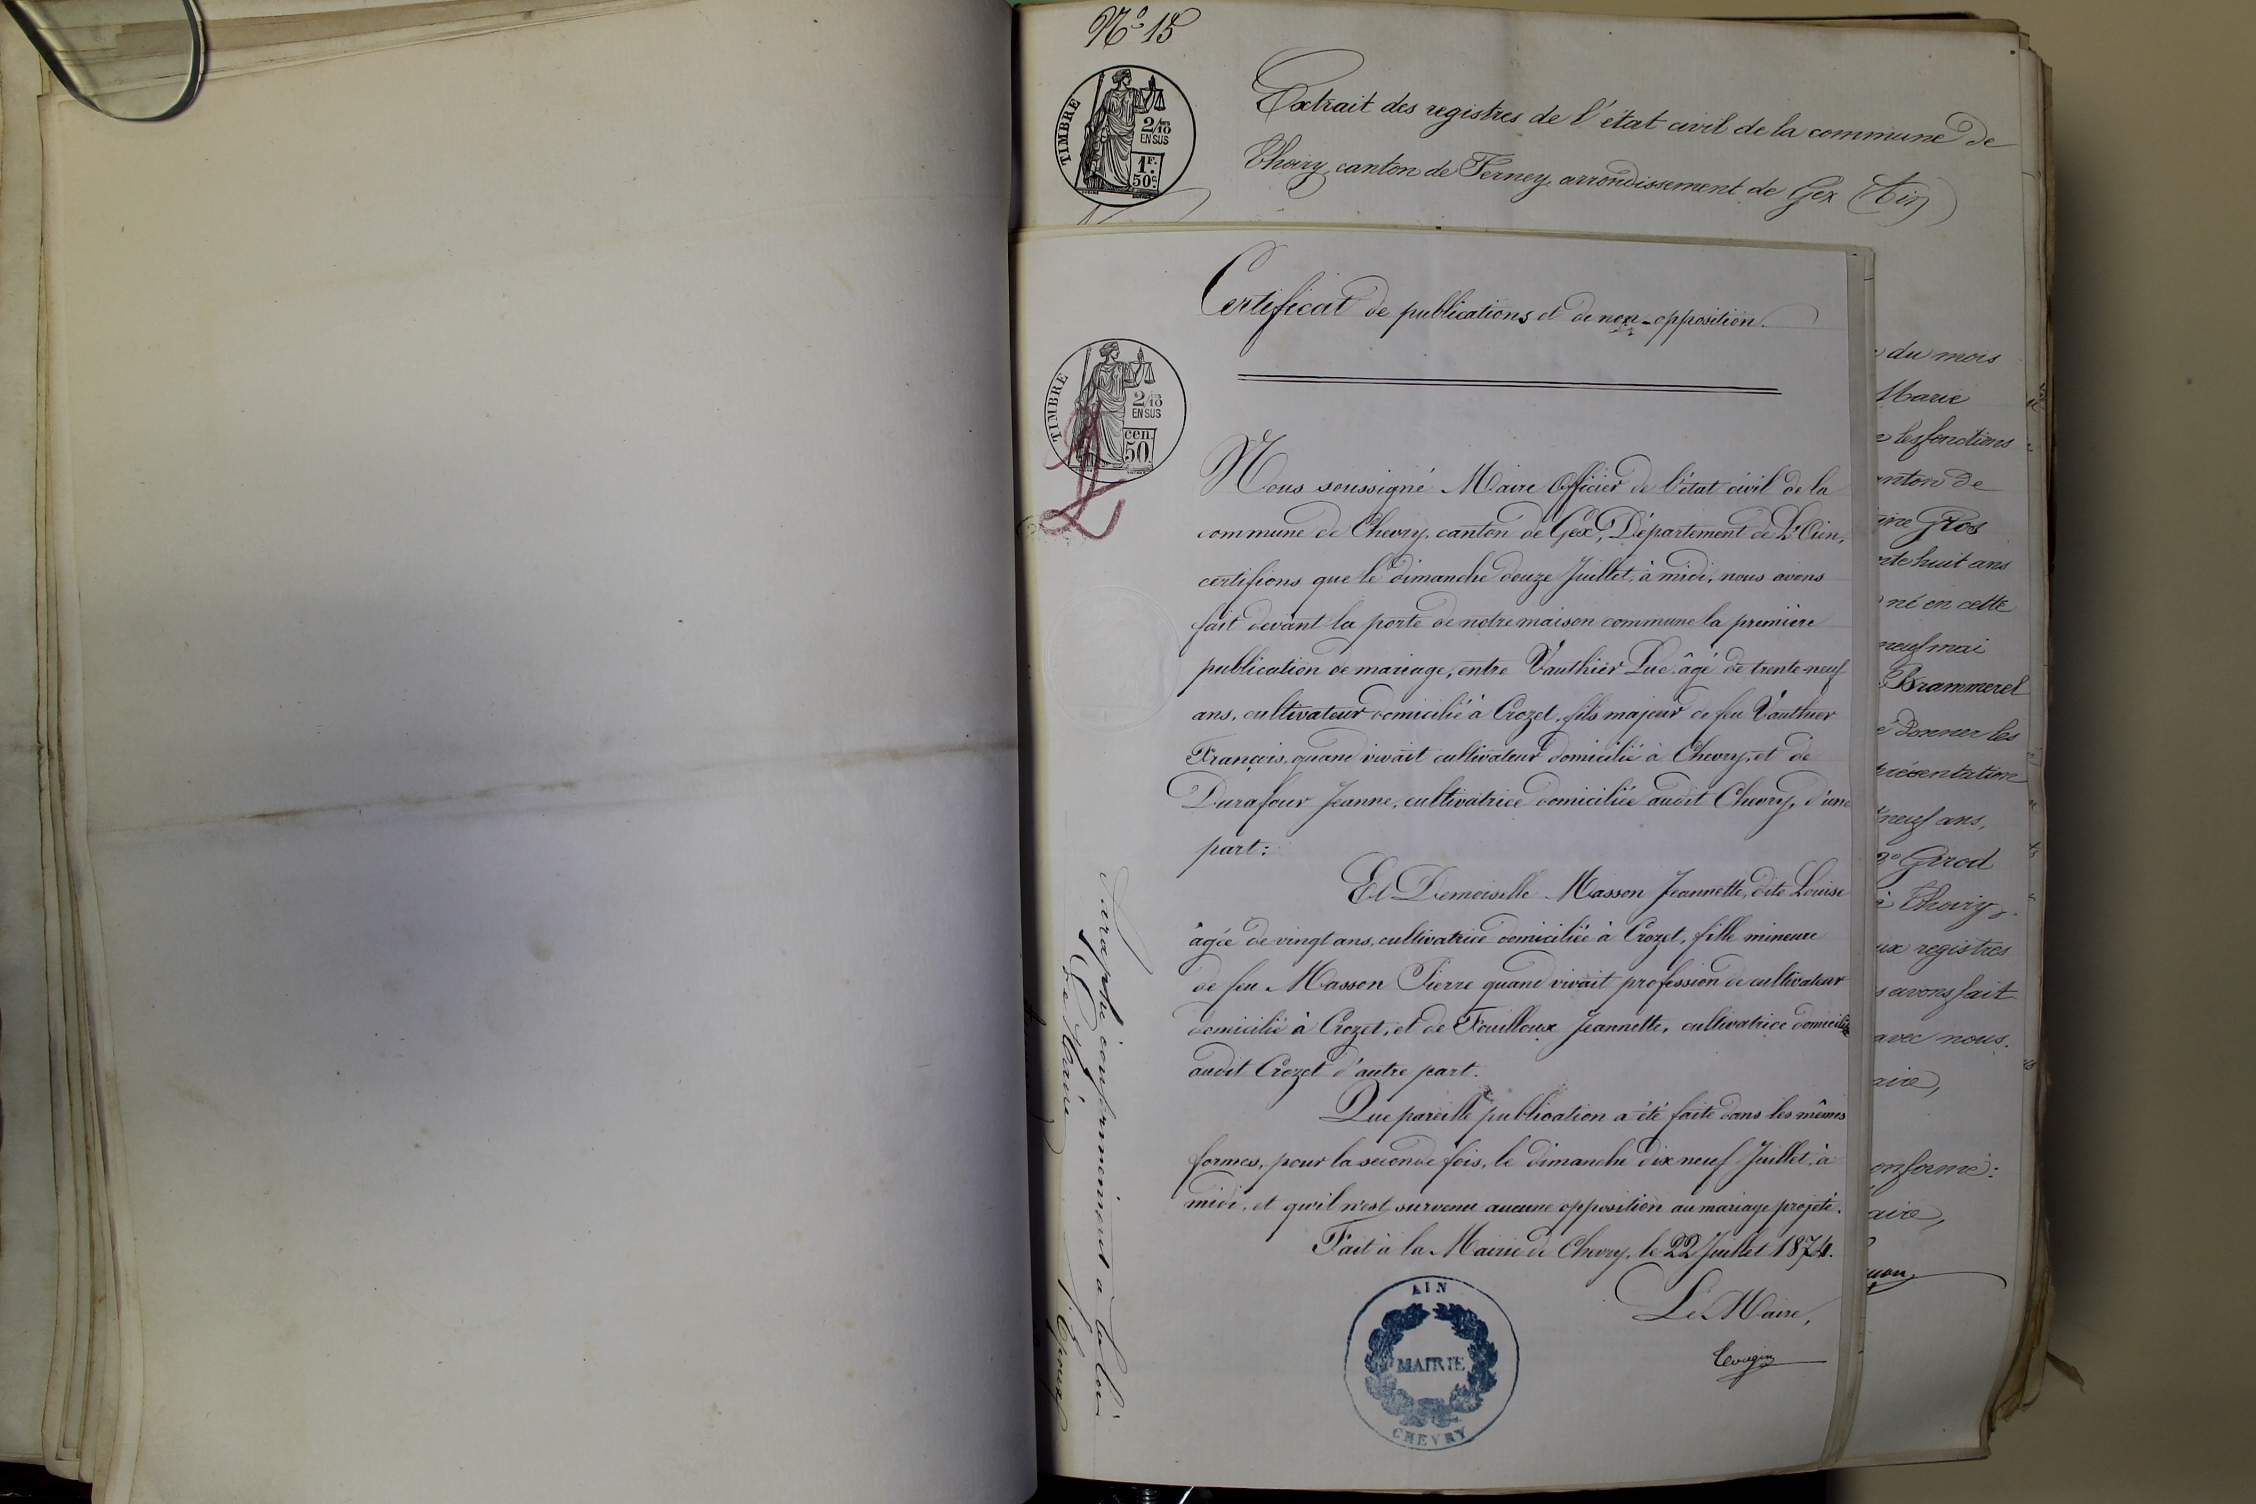 Nº 15
TIMBRE
2/10
EN SUS
1F.
50c.
Extrait des registres de l'état civil de la commune de
Thoiry, canton de Ferney, arrondissement de Gex (Ain)
Certificat de publications et de non-opposition.
TIMBRE
2/10
EN SUS
cen.
50
Nous soussigné Maire Officier de l'état civil de la
commune de Chevry, canton de Gex, Département de L'Ain,
certifions que le dimanche douze Juillet, à midi, nous avons
fait devant la porte de notre maison commune la première
publication de mariage, entre Vauthier Luc âgé de trente-neuf
ans, cultivateur domicilié à Crozet, fils majeur de feu Vauthier
François, quand vivait cultivateur domicilié à Chevry, et de
Durafour Jeanne, cultivatrice domiciliée audit Chevry, d'une
part:
Et Demoiselle Masson Jeannette, dite Louise
âgée de vingt ans, cultivatrice domiciliée à Crozet, fille mineure
de feu Masson Pierre quand vivait profession de cultivateur
domicilié à Crozet, et de Fouilloux Jeannette, cultivatrice domiciliée
audit Crozet d'autre part.
Que pareille publication a été faite dans les mêmes
formes, pour la seconde fois, le dimanche dix neuf Juillet, à
midi, et qu'il n'est survenu aucune opposition au mariage projeté.
Fait à la Mairie de Chevry, le 22 Juillet 1874.
Le Maire,
AIN
MAIRIE
CHEVRY
Paraphé conformément à la loi
Le Maire
du mois
Marie
les fonctions
anton de
Gros
huit ans
né en cette
neuf mai
Brammerel
donner les
présentation
neuf ans,
Girod
à Thoiry,
aux registres
avons fait
avec nous.
aire,
onforme:
aire,